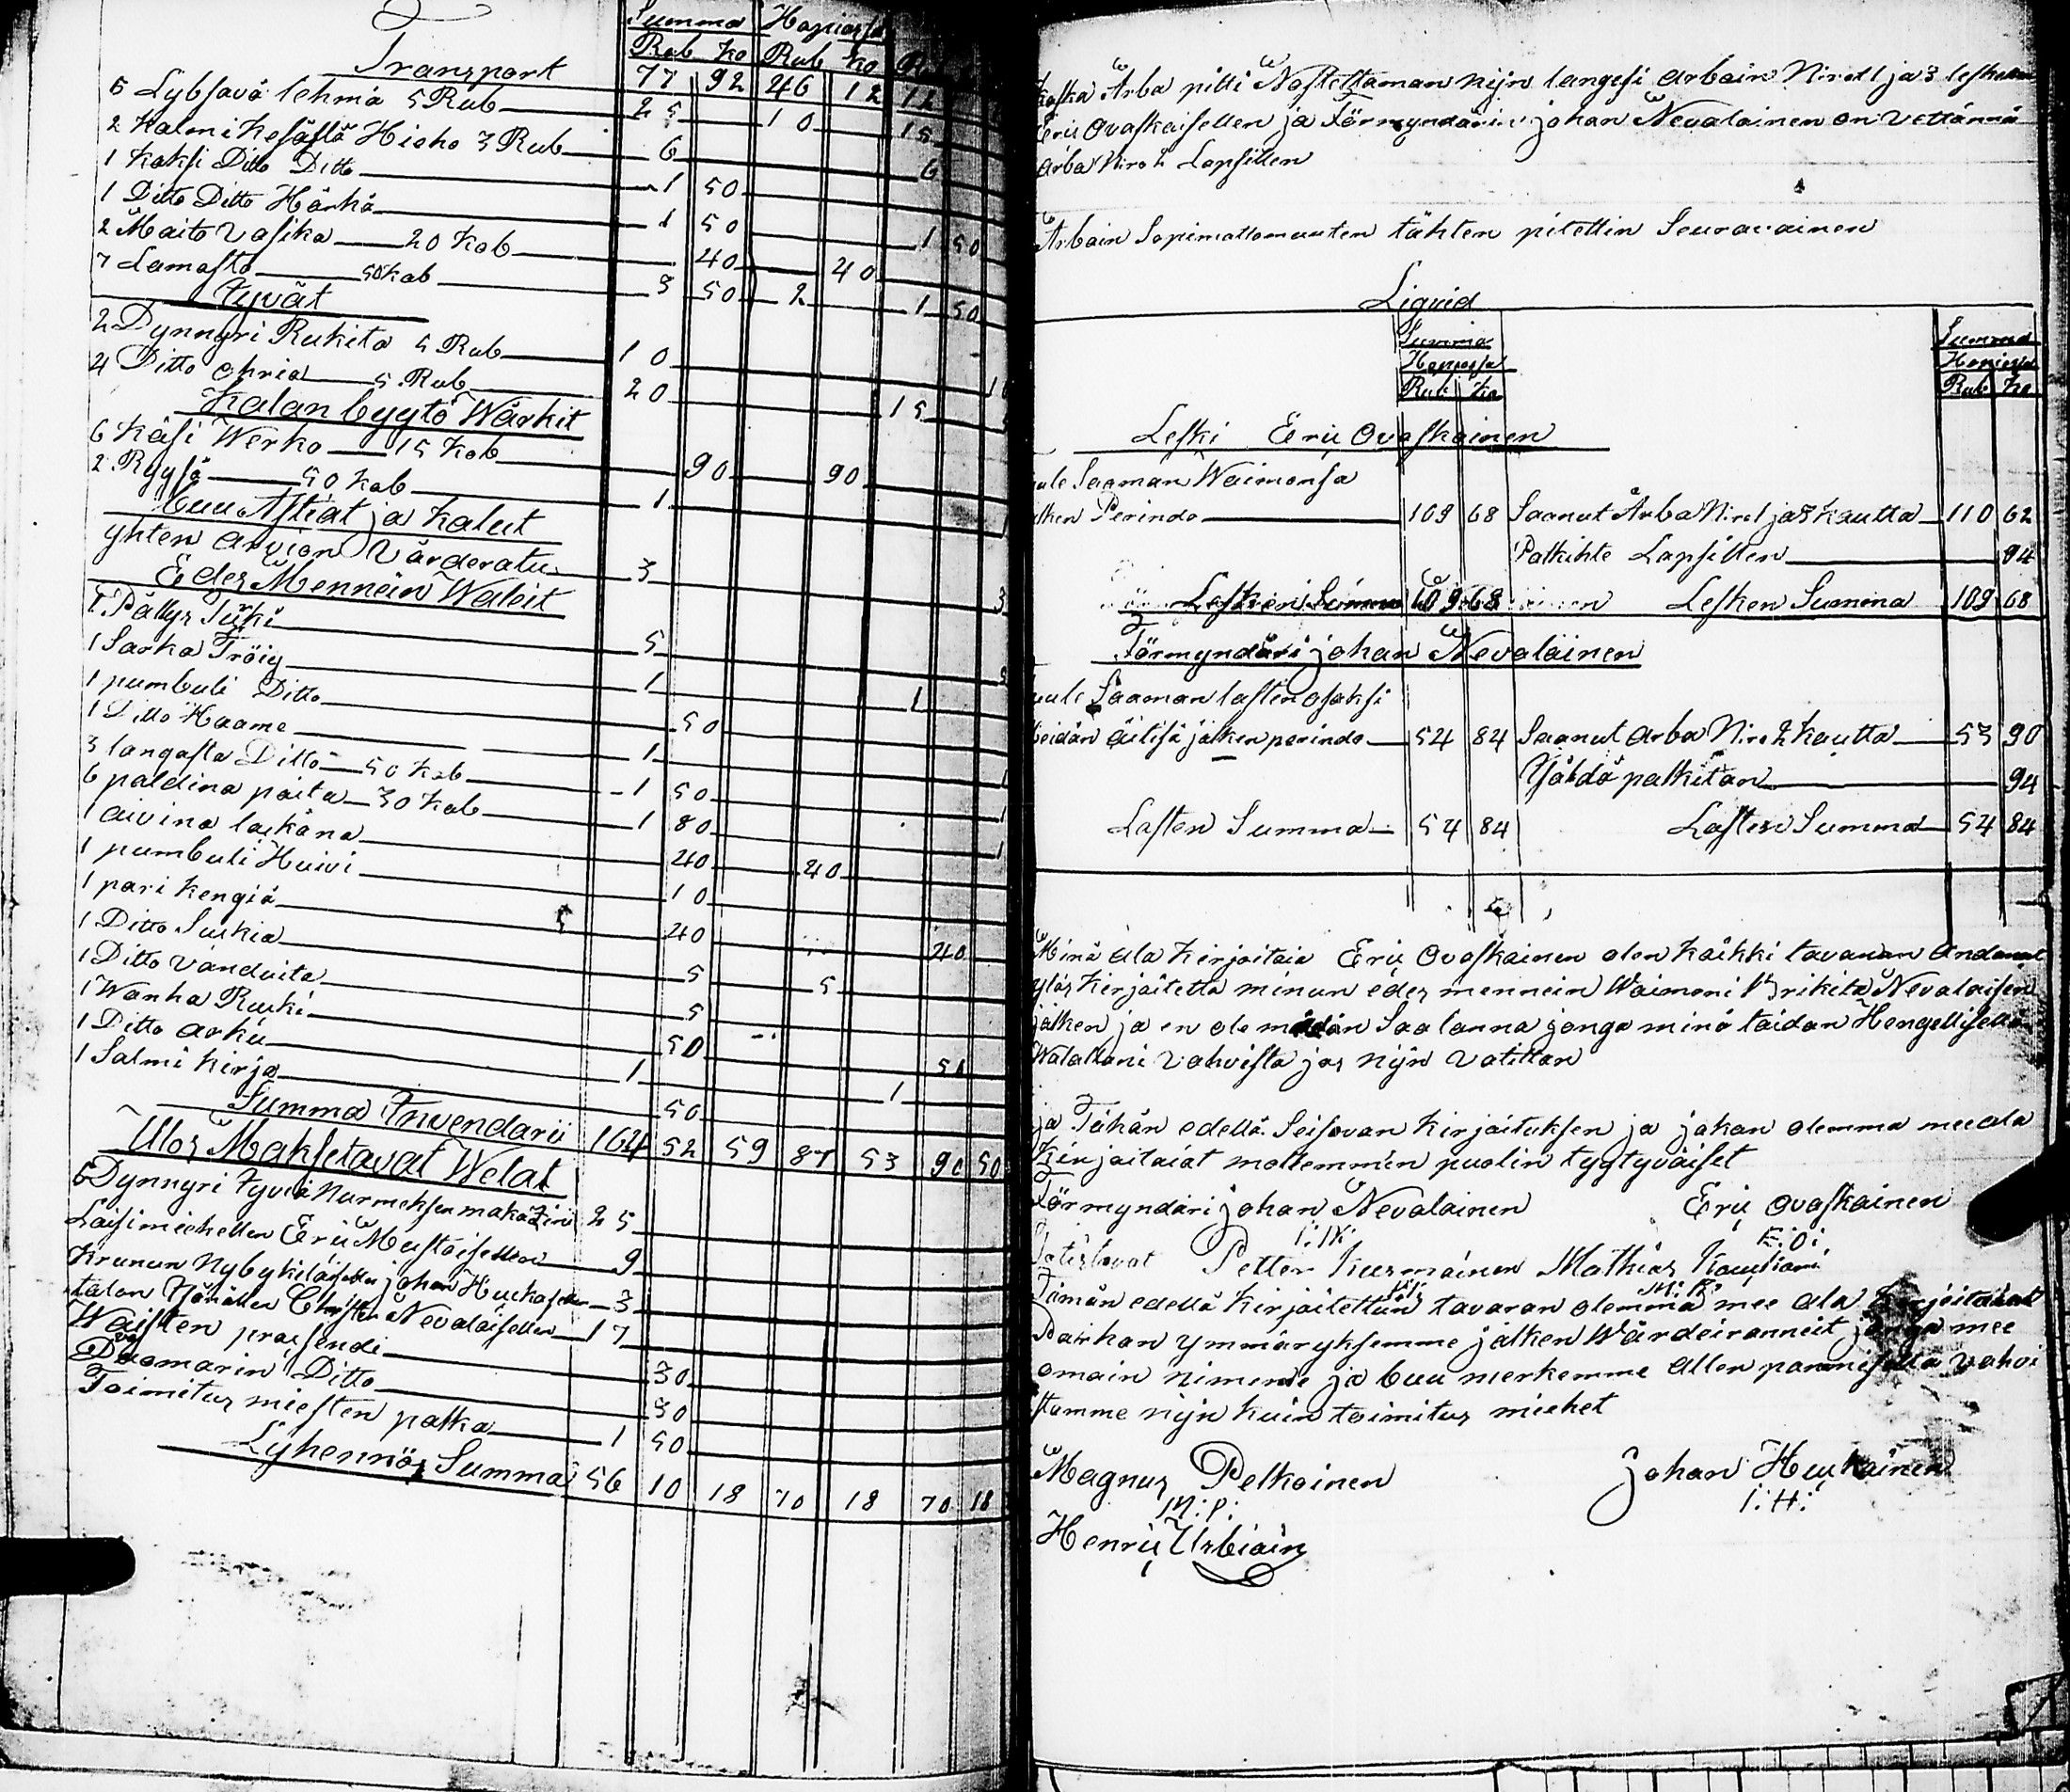 Summa Hopiassa
Rub Ko Rub Ko Ru
Transport 77 92 46 12 12
5 Lybsävä lehmä 5 Rub 25 10 15
2 Kalmi Kesästä Hieho 3 Rub 6 6
1 Kaksi Ditto Ditto 1 50
1 Ditto Ditto Härkä 1 50 1 50
2 Maito Vasika 20 Kob 40 40
7 Lamasta 50 Kob 3 50 2 1 50
tyvät
2 Dynnyri Rukita 5 Rub 10
4 Ditto ohria 5 Rub 20 15
Kalan byytö Wärkit
6 Käsi Werko 15 Kob 90 90
2 Ryysä 50 Kob 1
buu Astiat ja Kalut
yhten arvion Värderatu 3 3
Edes Mennein Waleit
1 Pällys Turki 5
1 Sarka Tröiy 1 1
1 pumbuli Ditto 50
1 Ditto Haame 1
3 langasta Ditto 50 Kob 1 50
6 paldina paita 30 Kob 1 80
1 aivina lakana 40 40
1 pumbuli Huivi 10
1 pari Kengiä 40 40
1 Ditto Sukia 5 5
1 Ditto Vanduita 5
1 Wanha Ruki 50
1 Ditto arku 1 1
1 Salmi Kirja 50
Summa Invendarii 164 52 59 87 53 90 50
Ulos Maksetavat Welat
5 Dynnyri tyviä Nurmeksen makazin 25
Laisimiehellen Eric Mustoisellen 9
Krunun Nybykiläisellen johan Huckasellen 3
talon Christer Nevalaisellen 17
Waisten prosendi 30
Duomarin Ditto 30
Toimitus miesten palka 1 50
Lyhennös Summa 56 10 18 70 18 70 18
Koska Arba pilli Nostettaman nijn langesi arbain Nirol ja 3 lesken
Eric Ovaskaisellen ja Förmyndärin johan Nevalainen on vettännä
arba Niro 2 Lapsillen
Arbain Sopimattomuuten tähten pitettin Seuravainen
Liqvid
Summa Summa
Hopiassa Hopiassa
Rub Ko Rub Ko
Leski Eric Ovaskainen
tule Saaman Waimonsa
jälken Perindo 109 68 Saanut Arba Nirol ja 3 kautta 110 62
Palkihte Lapsillen 94
Lesken Summa 109 68 Lesken Summa 109 68
Förmyndäri johan Nevalainen
tule Saaman lasten osaksi
heidän äitisä jälken perindo 54 84 Saanut arba Niro 2 kautta 53 90
Yöldä palkitan 94
Lasten Summa 54 84 Lasten Summa 54 84
Minä ala Kirjoitaia Eric Ovaskainen olen kaikki tavaran andanut
ylös Kirjoitetta minun edes mennein Waimoni Brikita Nevalaisen
jälken ja en ole mitän Saalanna jonga minä taidan Hengellisellä
Walallani vahvista jos nijn vatitan
ja Tähän edellä Seisovan Kirjoituksen ja jakon olemma mee ala
Kirjoitaiat mollemmin puolin tygtyväiset
Förmyndäri johan Nevalainen Eric Ovaskainen
I:N: E:O:
Petter Kurmainen Mathias
Tämän edellä Kirjoitettun tavaran olemma mee ala Kirjoitaiat
Parhan ymmäryksemme jälken Wärdeiranneit jonga mee
omain nimme ja buu merkemme allen pannmisella vahvi
stamme nijn kuin toimitus miehet
Magnus Pelkoinen Johan Huckainen
M:P: I:H:
Henric Urbiain